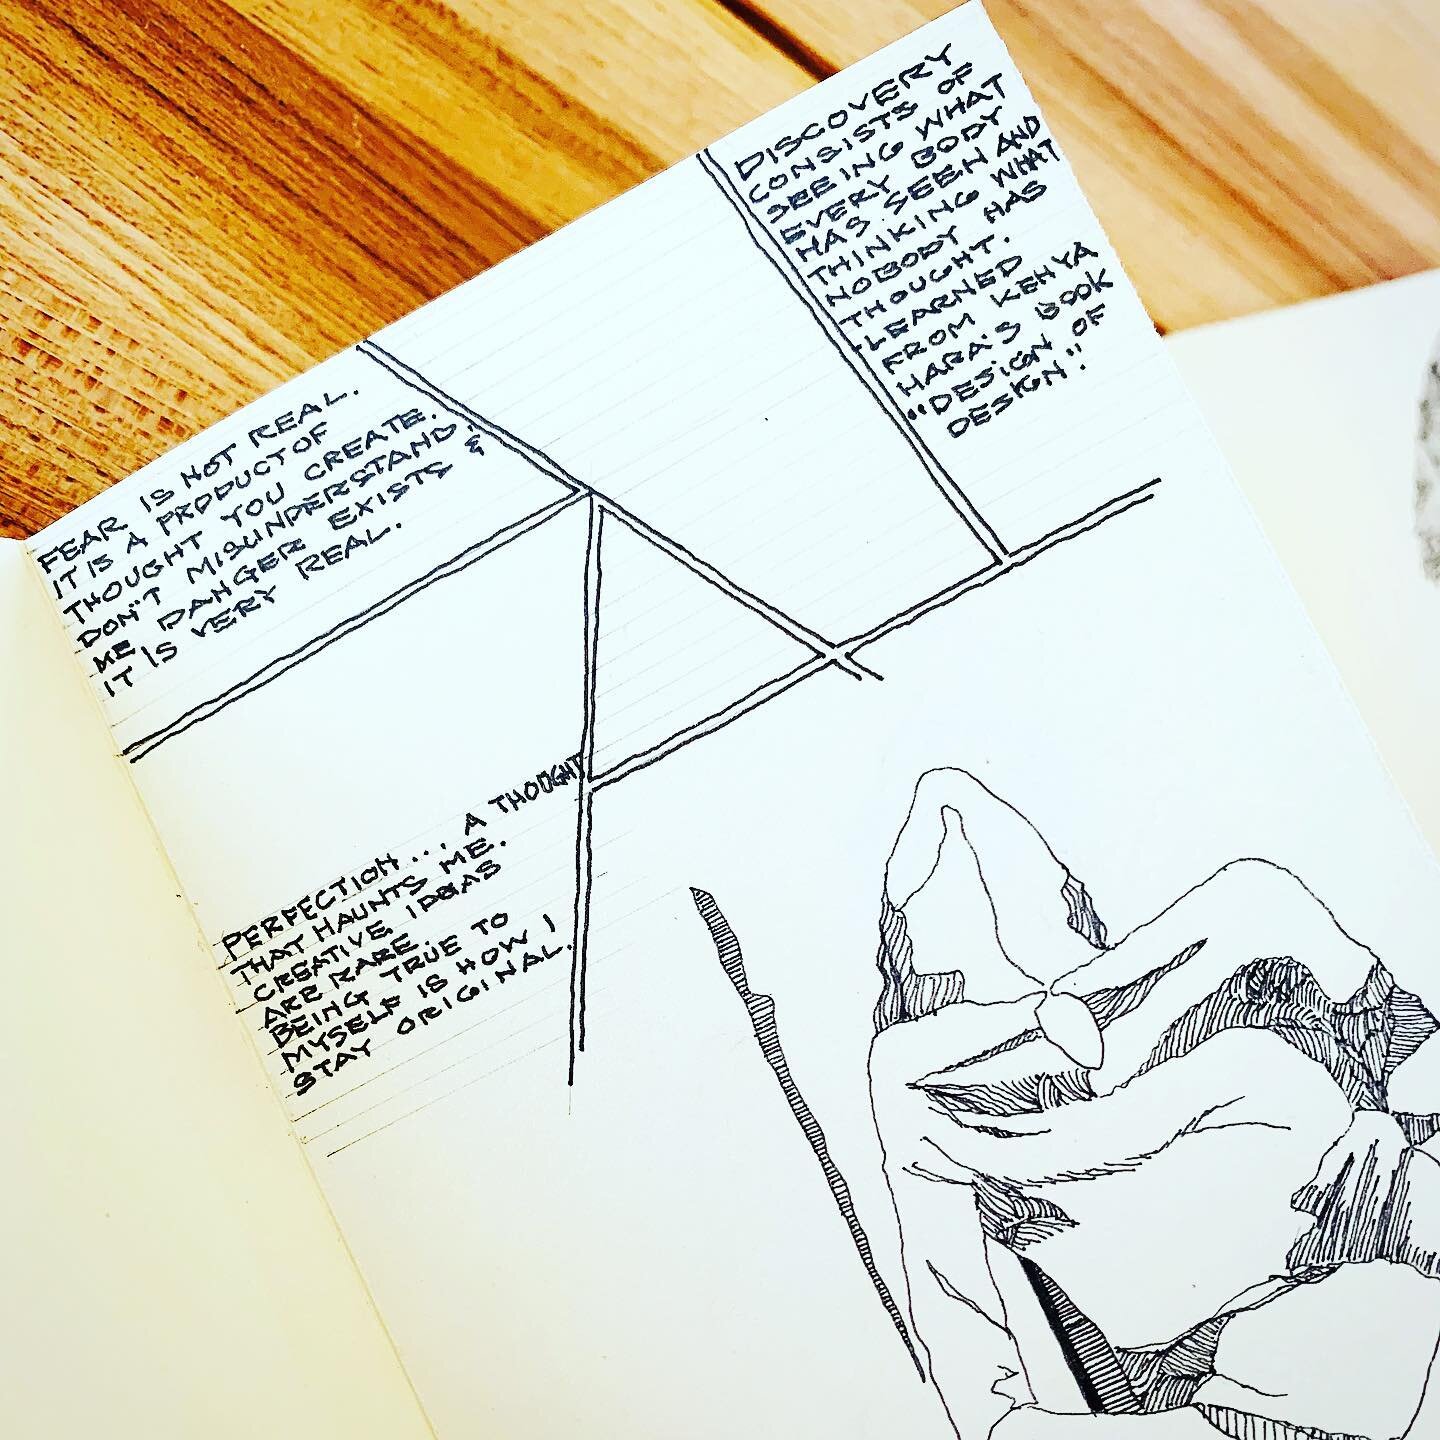 FEAR IS NOT REAL.
IT IS A PRODUCT OF
THOUGHT YOU CREATE.
DON'T MISUNDERSTAND
ME DANGER EXISTS &
IT IS VERY REAL.
DISCOVERY
CONSISTS OF
SEEING WHAT
EVERY BODY
HAS SEEN AND
THINKING WHAT
NOBODY HAS
THOUGHT.
-LEARNED
FROM KENYA
HARA'S BOOK
"DESIGN OF
DESIGN"
PERFECTION..., A THOUGHT
THAT HAUNTS ME.
CREATIVE IDEAS
ARE RARE.
BEING TRUE TO
MYSELF IS HOW I
STAY ORIGINAL.